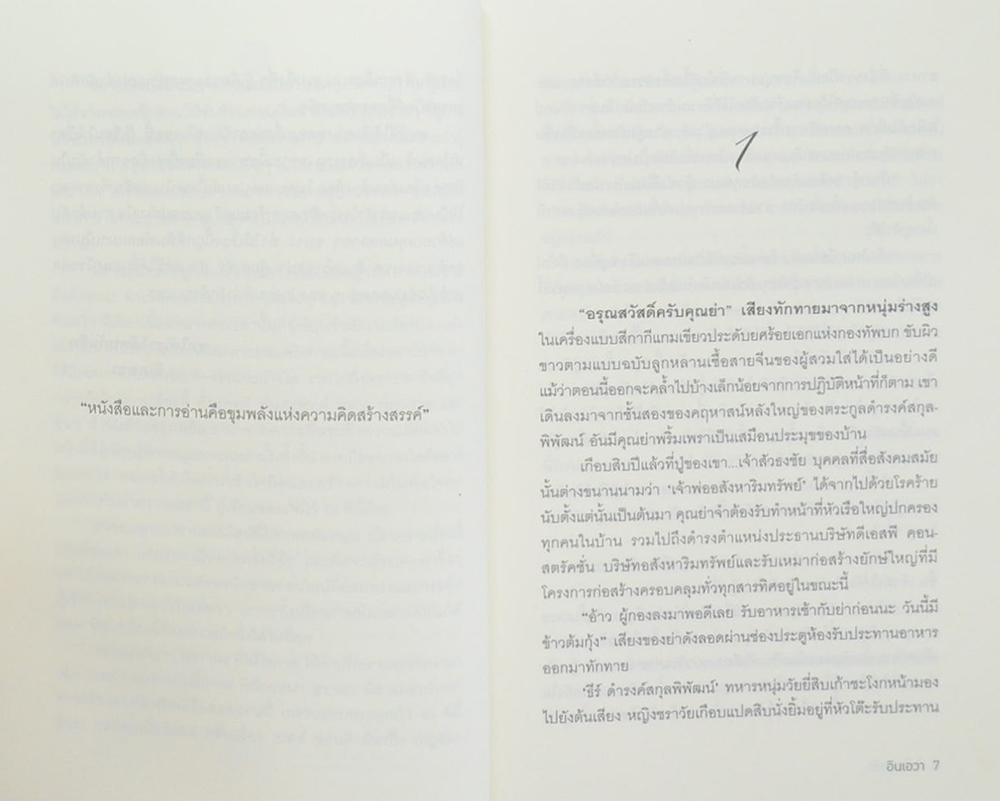 “หนังสือและการอ่านคือขุมพลังแห่งความคิดสร้างสรรค์”
1
“อรุณสวัสดิ์ครับคุณย่า” เสียงทักทายมาจากหนุ่มร่างสูง
ในเครื่องแบบสีกากีแกมเขียวประดับยศร้อยเอกแห่งกองทัพบก ขับผิว
ขาวตามแบบฉบับลูกหลานเชื้อสายจีนของผู้สวมใส่ได้เป็นอย่างดี
แม้ว่าตอนนี้ออกจะคล้ำไปบ้างเล็กน้อยจากการปฏิบัติหน้าที่ก็ตาม เขา
เดินลงมาจากชั้นสองของคฤหาสน์หลังใหญ่ของตระกูลดำรงค์สกุล-
พิพัฒน์ อันมีคุณย่าพริ้มเพราเป็นเสมือนประมุขของบ้าน
เกือบสิบปีแล้วที่ปู่ของเขา...เจ้าสัวธงชัย บุคคลที่สื่อสังคมสมัย
นั้นต่างขนานนามว่า ‘เจ้าพ่ออสังหาริมทรัพย์’ ได้จากไปด้วยโรคร้าย
นับตั้งแต่นั้นเป็นต้นมา คุณย่าจำต้องรับทำหน้าที่หัวเรือใหญ่ปกครอง
ทุกคนในบ้าน รวมไปถึงดำรงตำแหน่งประธานบริษัทดีเอสพี คอน-
สตรัคชั่น บริษัทอสังหาริมทรัพย์และรับเหมาก่อสร้างยักษ์ใหญ่ที่มี
โครงการก่อสร้างครอบคลุมทั่วทุกสารทิศอยู่ในขณะนี้
“อ้าว ผู้กองลงมาพอดีเลย รับอาหารเช้ากับย่าก่อนนะ วันนี้มี
ข้าวต้มกุ้ง” เสียงของย่าดังลอดผ่านช่องประตูห้องรับประทานอาหาร
ออกมาทักทาย
‘ธีร์ ดำรงค์สกุลพิพัฒน์’ ทหารหนุ่มวัยยี่สิบเก้าชะโงกหน้ามอง
ไปยังต้นเสียง หญิงชราวัยเกือบแปดสิบนั่งยิ้มอยู่ที่หัวโต๊ะรับประทาน
อินเอวา 7